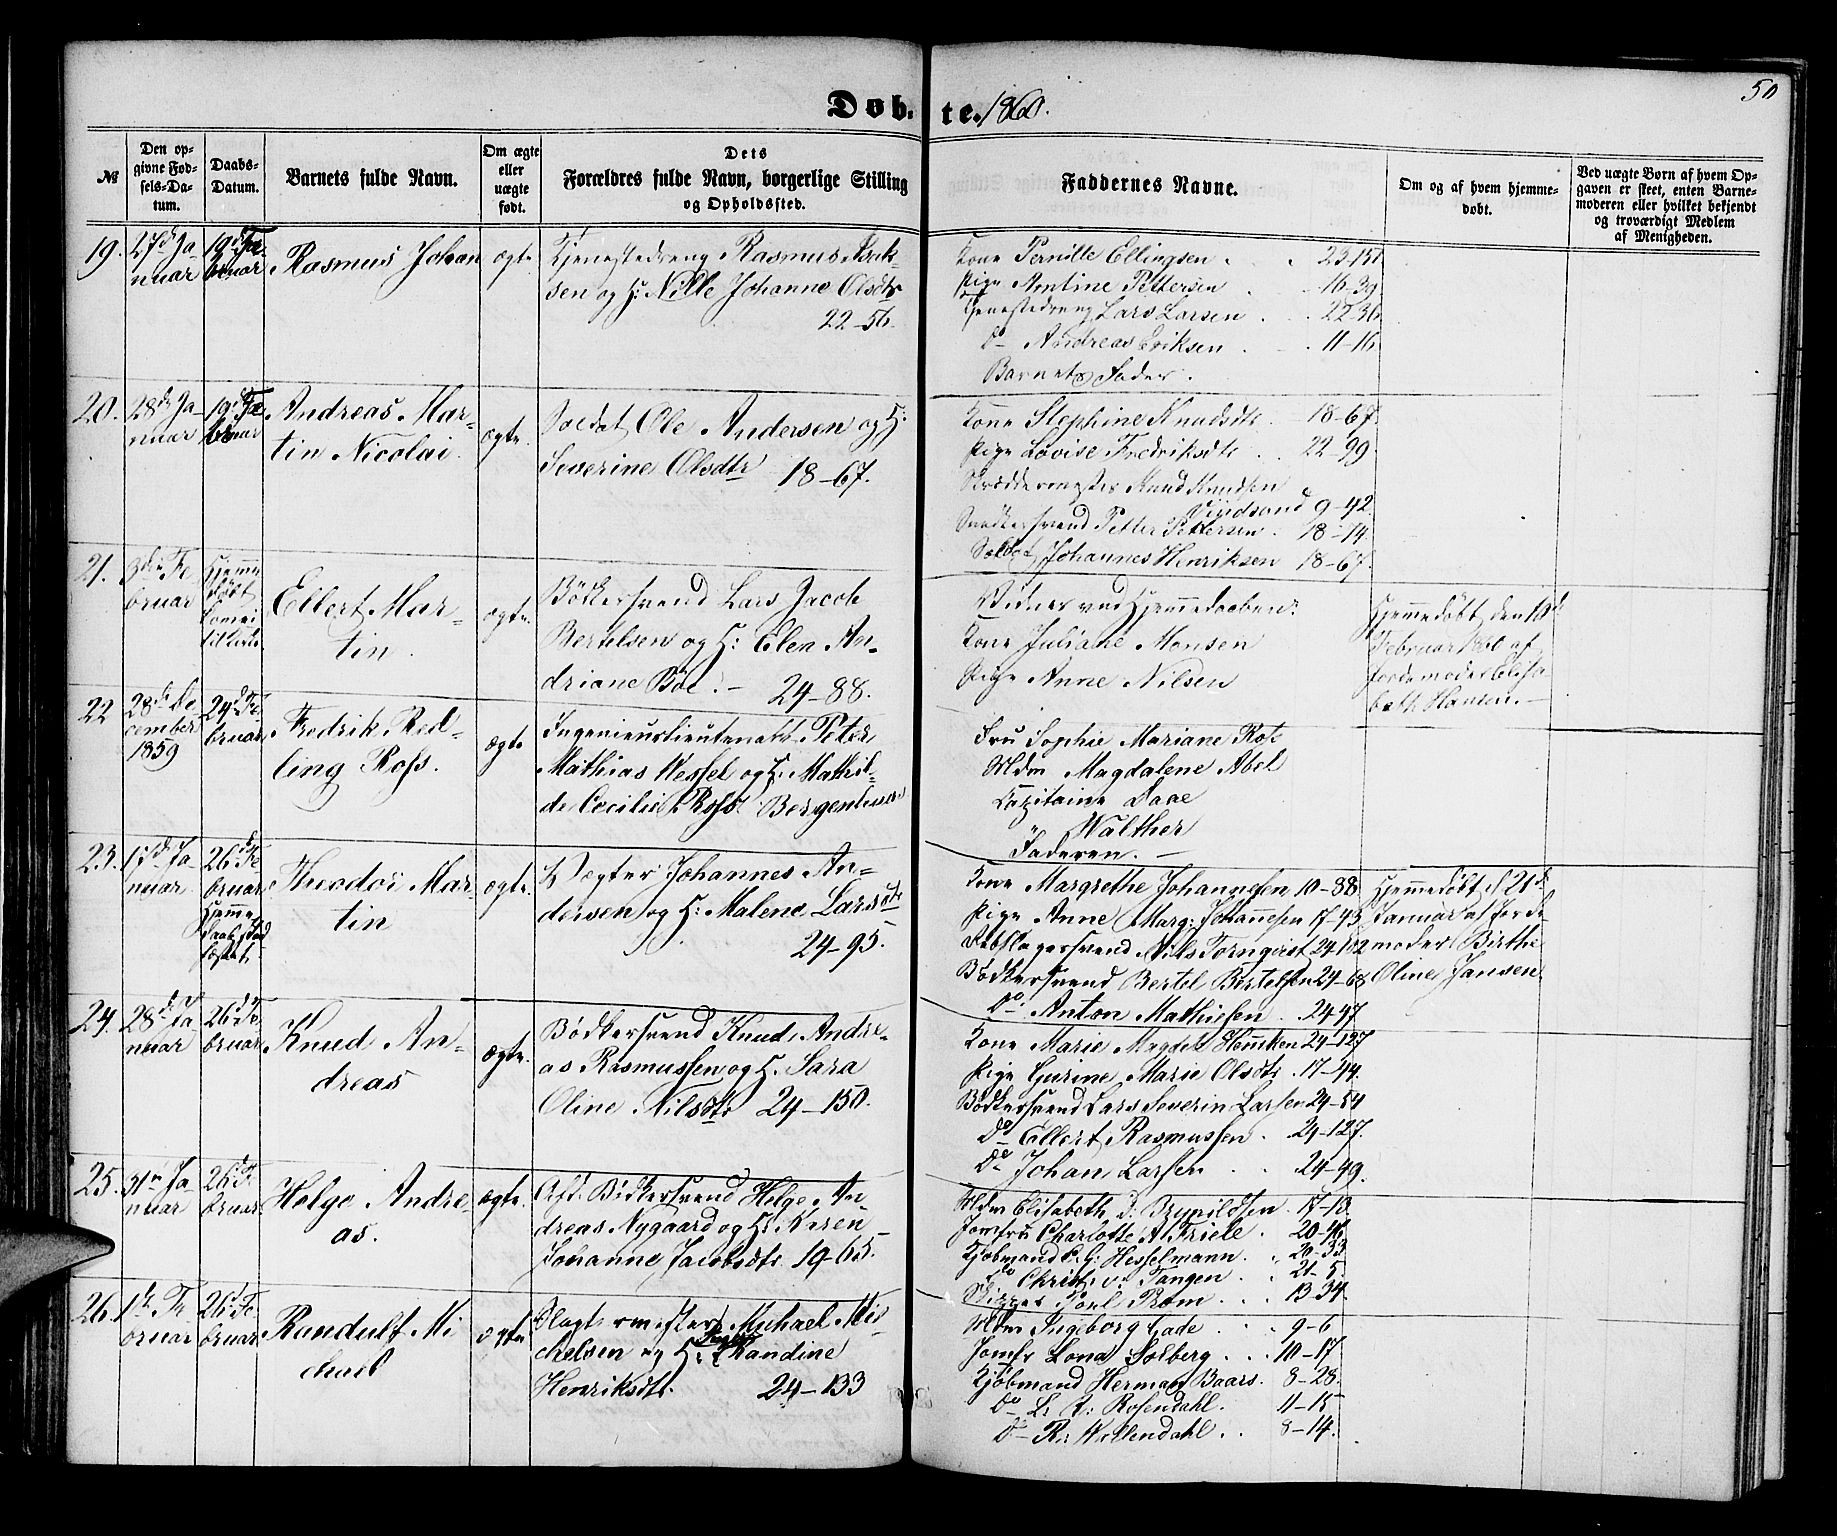 50
Døbte. 1860.
№
Den op-
givne Fød-
sels-Da-
tum.
Daabs-
Datum.
Barnets fulde Navn.
Om ægte
eller
uægte
født.
Dets
Forældres fulde Navn, borgerlige Stilling
og Opholdssted.
Faddernes Navne.
Om og af hvem hjemme-
døbt.
Ved uægte Børn af hvem Op-
gaven er skeet, enten Barne-
moderen eller hvilket bekjendt
og troværdigt Medlem
af Menigheden.
19. 27d Ja-
nuar
19d Fe-
bruar
Rasmus Johan
ægte
Tjenestedreng Rasmus
sen og H: Nille Johanne Olsdtr
22-56.
Kone Pernille Ellingsen
Pige Antine Pettersen 16-39
Tjenestedreng Lars Larsen 22-36
Do Andreas Eriksen 11-16
Barnets Fader.
20. 28de Ja-
nuar
19d Fe-
bruar
Andreas Mar-
tin Nicolai
ægte.
Soldat Ole Andersen og H:
Severine Olsdtr 18-67.
Kone Stephine Knudsdtr 18-67.
Pige Lovise Fredriksdtr 22-99.
Skræddermester Knud Knudsen
9-42.
Snedkersvend Petter Pettersen 18-14
Soldat Johannes Henriksen 18-67.
21. 3die Fe-
bruar
Hjemme
døbt
Ellert Mar-
tin.
ægte.
Bödkersvend Lars Jacob
Bertelsen og H: Elen An-
driane Böe. - 24-88.
Vidner ved Hjemmedaaben:
Kone Juliane Monsen
Pige Anne Nilsen
Hjemmedøbt den 10d
Februar 1860 af
Jordemoder Elisa
beth Hansen. -
22 28de De-
cember
1859
24d Fe-
bruar
Fredrik Red-
ling Ross.
ægte
Ingenieurlieutenant Peter
Mathias Wessel og H: Mathil-
de Cecilie Ross. Bergenhuus
Fru Sophie Mariane Ross
Mdm Magdalene Abel
Capitaine Daae
" Walther
Faderen. -
23. 17d Ja-
nuar.
26d Fe-
bruar
Hjemme
daab stad
fæstet.
Theodor Mar-
tin
ægte.
Vægter Johannes An-
dersen og H: Malene Larsdtr
24-95.
Kone Margrethe Johannssen 10-88
Pige Anne Marg: Johannesen 17-43
Rebslagersvend Nils Tornqvist 24-152
Bödkersvend Bertel Bertelsen 24-68
Do Anton Mathiesen. 24-97
Hjemmedøbt d 21de
Januar af Jorde
moder Birthe
Oline Jansen.
24. 28de Ja-
nuar
26d Fe-
bruar
Knud An-
dreas
ægte.
Bödkersvend Knud Andre-
as Rasmussen og H. Sara
Oline Nilsdtr 24-150.
Kone Marie Magdel Hamken 24-127
Pige Gurine Marie Olsdtr 17-44.
Bödkersvend Lars Severin Larsen 24-54
Do Ellert Rasmussen. 24-127.
Do Johan Larsen 24-49.
25. 31te Ja-
nuar
26d Fe-
bruar
Helge Andre-
as.
ægte.
Afd. Bödkersvend Helge An-
dreas Nygaard og H: Karen
Johanne Jacobsdtr 19-65.
Mdm Elisabeth D: Brynildsen 17-13.
Jomfru Charlotte A Friele 20-46
Kjöbmand C. G: Hesselmann 20-33
Do Christ: v: Tangen 21-5
Skipper Poul Prom 13-34.
26. 1ste Fe-
bruar
26d Fe-
bruar
Randulf Mi
chael
ægte
Slagtermester Michael Mi-
chelsen og H: Randine
Henriksdtr. 24-133
Mdm Ingeborg Gade 9-6
Jomfr Lona Solberg 10-17
Kjöbmand Herman Baars. 8-28.
Do L: R: Rosendahl. 11-15
Do R: Wallendahl. 8-14.